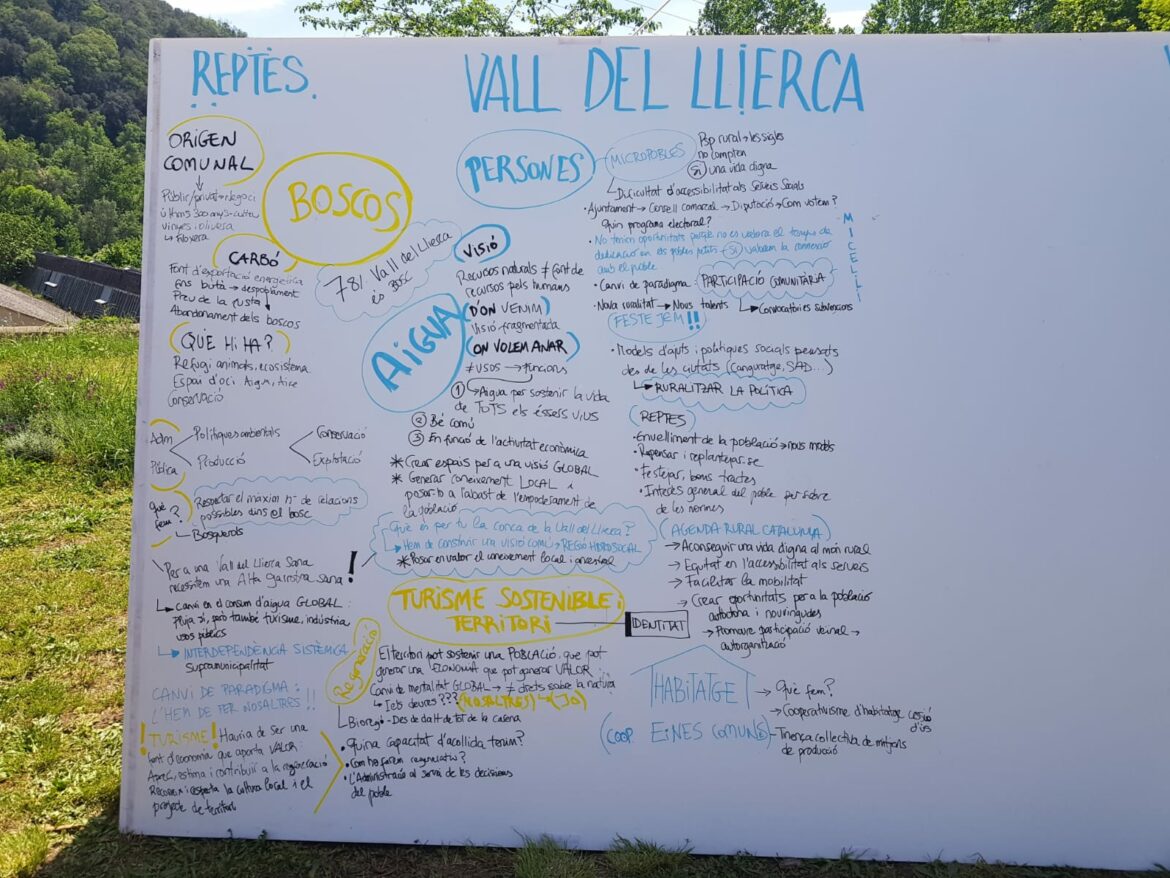 REPTES.
VALL DEL LLIERCA
ORIGEN
COMUNAL
Públic/privat → negoci
últims 300 anys - cultiu
vinyes i olivera
↳ filoxera
BOSCOS
CARBÓ
Font d'exportació energètica
fins butà → despoblament
Preu de la fusta
Abandonament dels boscos
78% Vall del Llierca
és BOSC
QUÈ HI HA?
Refugi animals, ecosistema
Espai d'oci Aigua, Aire
Conservació
Adm
Pública
Polítiques ambientals
Producció
Conservació
Explotació
Què
fem?
Respectar el màxim nº de relacions
possibles dins el bosc
Bosquerols
Per a una Vall del Llierca Sana
necessitem una Alta Garrotxa sana!
↳ Canvi en el consum d'aigua GLOBAL:
Pluja sí, però també turisme, indústria
usos públics
↳ INTERDEPENDÈNCIA SISTÈMICA
Supramunicipalitat
CANVI DE PARADIGMA:
L'HEM DE FER NOSALTRES!!
! TURISME! Hauria de ser una
font d'economia que aporta VALOR
Aprèn, estima i contribuir a la regeneració
Reconeix i respecta la cultura local i el
projecte de territori
AIGUA
VISIÓ
Recursos naturals ≠ font de
recursos pels humans
(D'ON VENIM)
Visió fragmentada
(ON VOLEM ANAR)
≠ usos → funcions
① ↳ Aigua per sostenir la vida
de TOTS els éssers vius
② Bé comú
③ En funció de l'activitat econòmica
* Crear espais per a una visió GLOBAL
* Generar coneixement LOCAL i
posar-ho a l'abast de l'empoderament de
la població
Què és per tu la conca de la Vall del Llierca?
↳ Hem de construir una visió comú → REGIÓ HIDROSOCIAL
* Posar en valor el coneixement local i ancestral
TURISME SOSTENIBLE i
TERRITORI
IDENTITAT
Regeneració
El territori pot sostenir una POBLACIÓ, que pot
generar una ECONOMIA que pot generar VALOR
Canvi de mentalitat GLOBAL → ≠ drets sobre la natura
↳ I els deures??? (NOSALTRES) → (JO)
↳ Bioregió - Des de dalt de tot de la carena
• Quina capacitat d'acollida tenim?
• Com ho farem regeneratiu?
• L'Administració al servei de les decisions
del poble
PERSONES
MICROPOBLES
Pop rural → les sigles
no compten
(SI) una vida digna
↳ Dificultat d'accessibilitat als Serveis Socials
• Ajuntament → Consell comarcal → Diputació → Com votem?
Quin programa electoral?
• No tenim oportunitats perquè no es valora el temps de
dedicació en els pobles petits → (SI) valorem la connexió
amb el poble
MICELLI
• Canvi de paradigma: PARTICIPACIÓ COMUNITÀRIA
• Nova ruralitat → Nous talents
↳ Convocatòries subvencions
FESTEJEM!!
• Models d'ajuts i polítiques socials pensats
des de les ciutats (Canguratge, SAD...)
↳ RURALITZAR LA POLÍTICA
REPTES
• Envelliment de la població → nous models
• Repensar i replantejar-se
• Festejar, bons tractes
• Interès general del poble per sobre
de les normes
(AGENDA RURAL CATALUNYA)
→ Aconseguir una vida digna al món rural
→ Equitat en l'accessibilitat als serveis
→ Facilitar la mobilitat
→ Crear oportunitats per a la població
autòctona i nouvingudes
→ Promoure participació veïnal →
autorganització
HABITATGE
→ Què fem?
→ Cooperativisme d'habitatge cessió
d'ús
(COOP. EINES COMUNS)
→ Tinença col·lectiva de mitjans
de producció